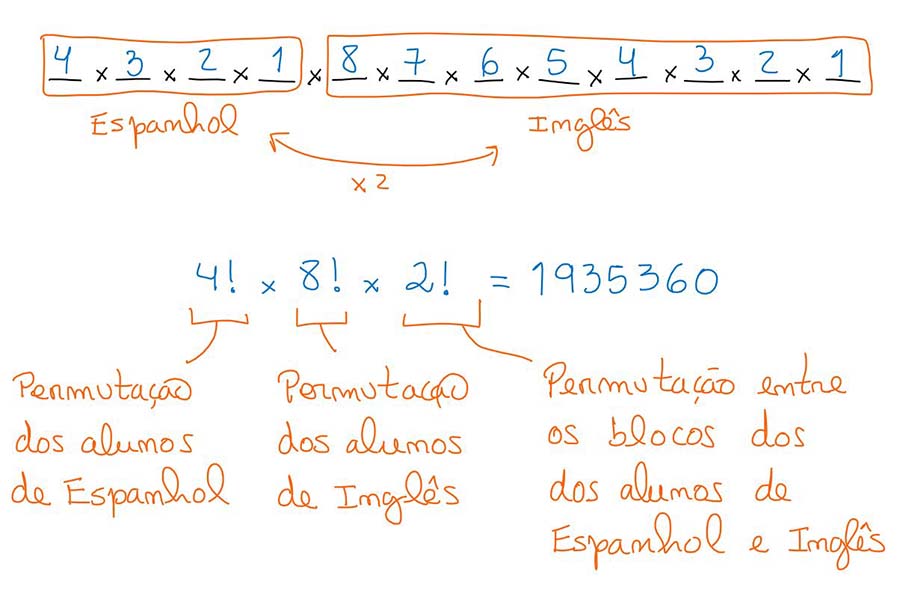 4 × 3 × 2 × 1 × 8 × 7 × 6 × 5 × 4 × 3 × 2 × 1
Espanhol
Inglês
× 2
4! × 8! × 2! = 1935360
Permutação
dos alunos
de Espanhol
Permutação
dos alunos
de Inglês
Permutação entre
os blocos dos
dos alunos de
Espanhol e Inglês